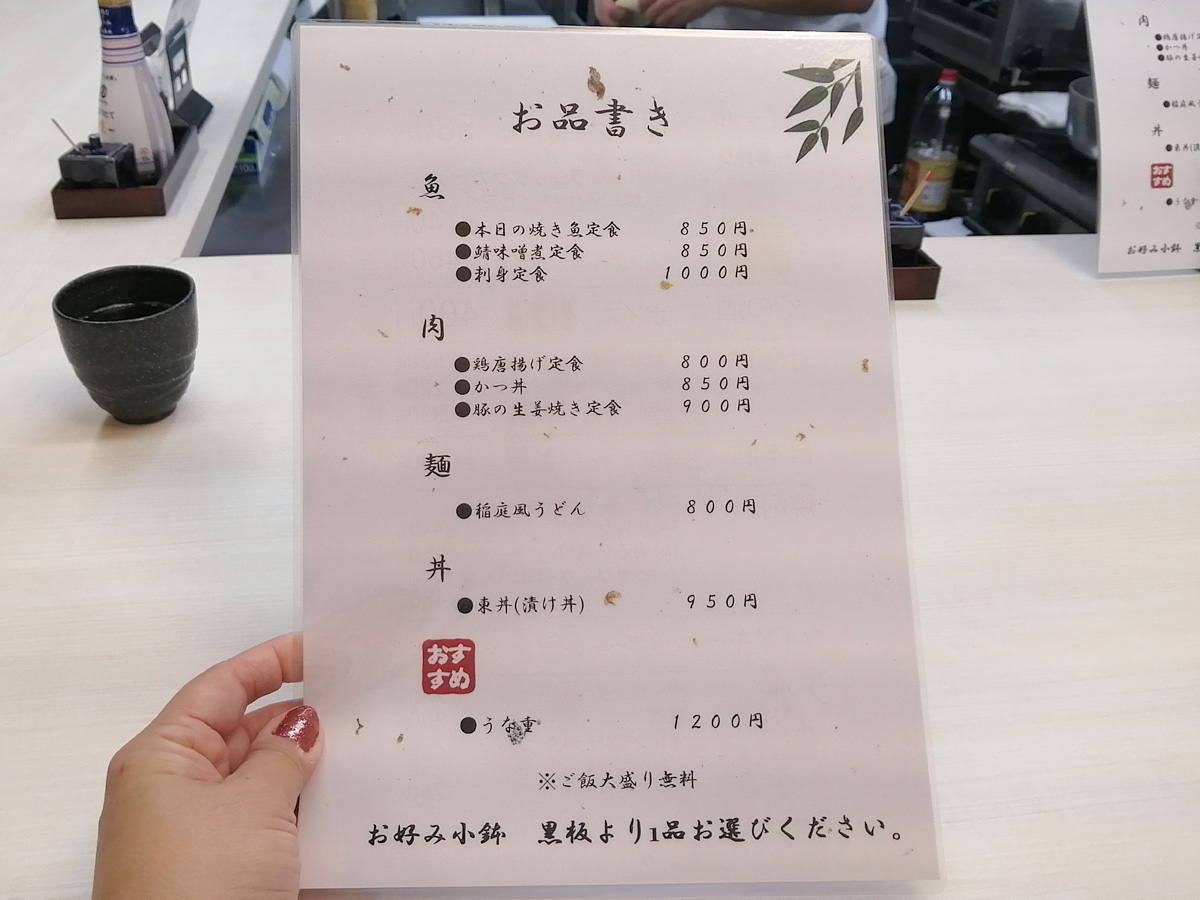 お品書き
魚
●本日の焼き魚定食 850円
●鯖味噌煮定食 850円
●刺身定食 1000円
肉
●鶏唐揚げ定食 800円
●かつ丼 850円
●豚の生姜焼き定食 900円
麺
●稲庭風うどん 800円
丼
●東丼(漬け丼) 950円
おす
すめ
●うな重 1200円
※ご飯大盛り無料
お好み小鉢 黒板より1品お選びください。
肉
●鶏唐揚げ定
●かつ丼
●豚の生姜焼
麺
●稲庭風
丼
●東丼(漬
おす
すめ
●うな
お好み小鉢 黒